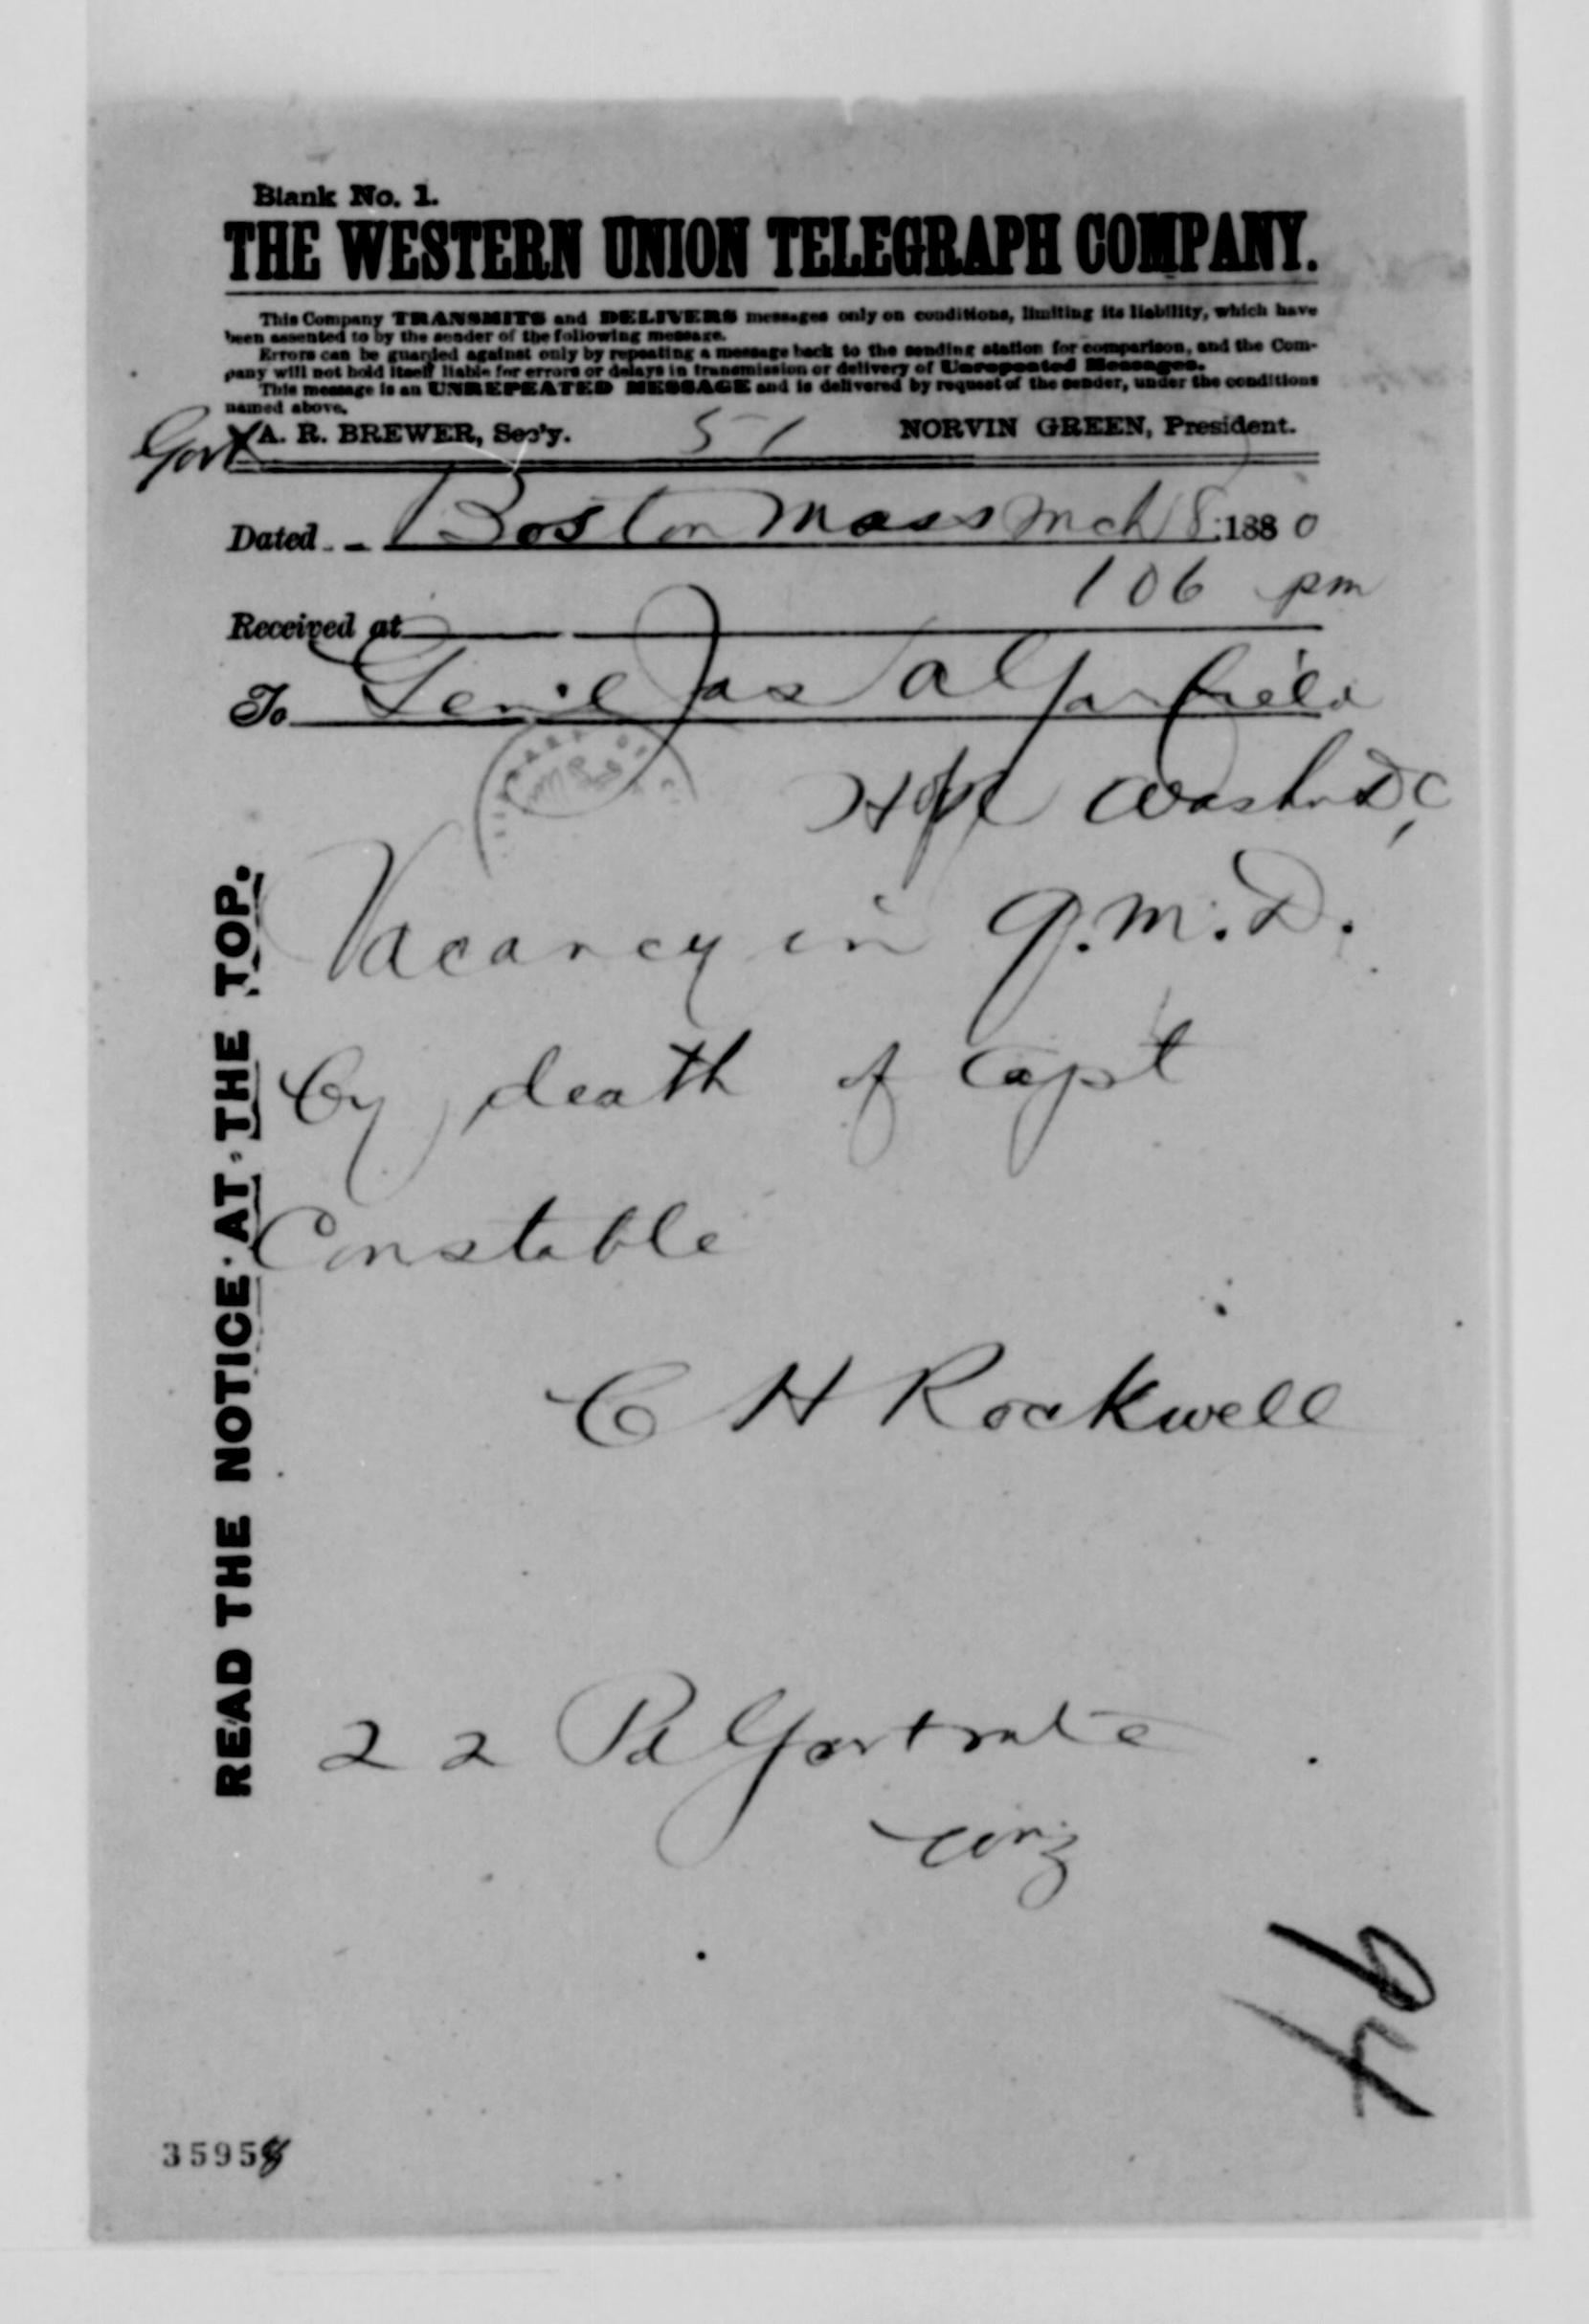 Blank No. 1.
THE WESTERN UNION TELEGRAPH COMPANY.
This Company TRANSMITS and DELIVERS messages only on conditions, limiting its liability, which have
been assented to by the sender of the following message.
Errors can be guarded against only by repeating a message back to the sending station for comparison, and the Com-
pany will not hold itself liable for errors or delays in transmission or delivery of Unrepeated Messages.
This message is an UNREPEATED MESSAGE and is delivered by request of the sender, under the conditions
named above.
Govt A. R. BREWER, Sec'y. 51 NORVIN GREEN, President.
Dated Boston Mass Mch 18 1880
106 pm
Received at
To Genl Jas A Garfield
Wash D C
Vacancy in Q.M.D.
by death of Capt
Constable
C H Rockwell
22 Pd Govt rate
READ THE NOTICE AT THE TOP.
46
35958